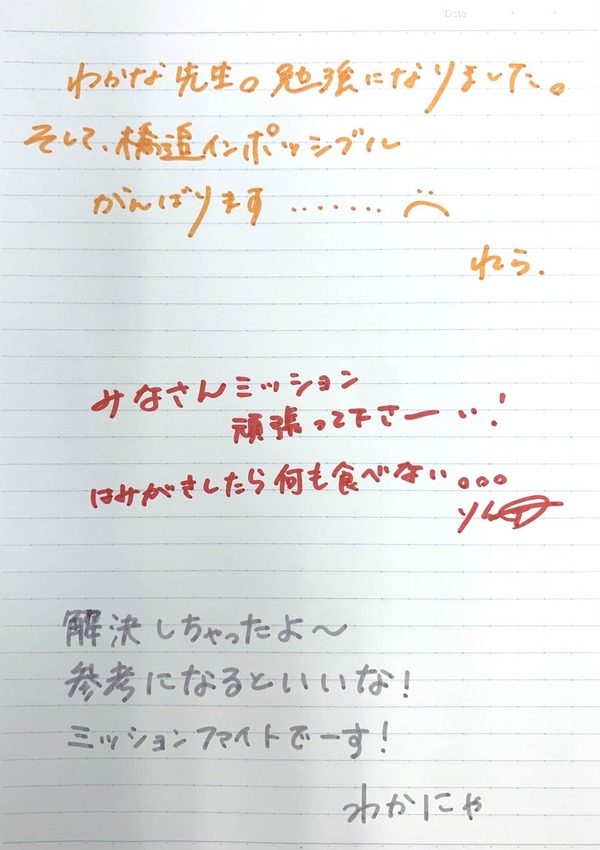 Date
わかな先生。勉強になりました。
そして、橋追インポッシブル
がんばります ........ ⍨
れら.
みなさんミッション
頑張って下さーい!
はみがきしたら何も食べない。。。
りん
解決しちゃったよ～
参考になるといいな!
ミッションファイトでーす!
わかにゃ